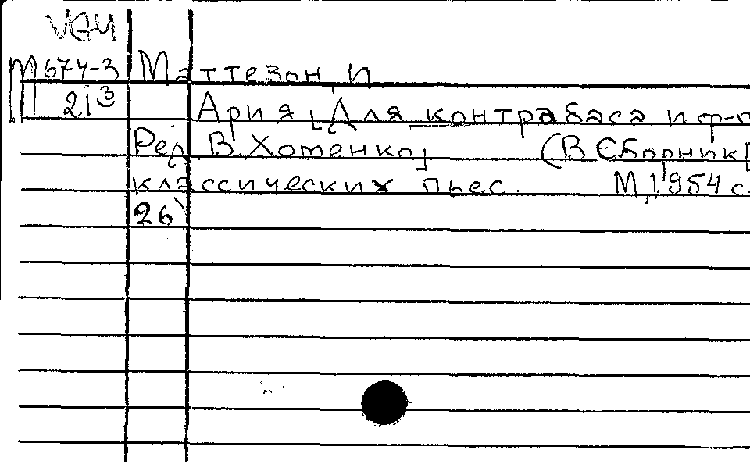 VGч
М674-3 Маттезон, И
213 Ария [Для контрабаса и ф-п
Ред. В. Хоменко] (В Сборник
классических пьес. М, 1954 с.
26)